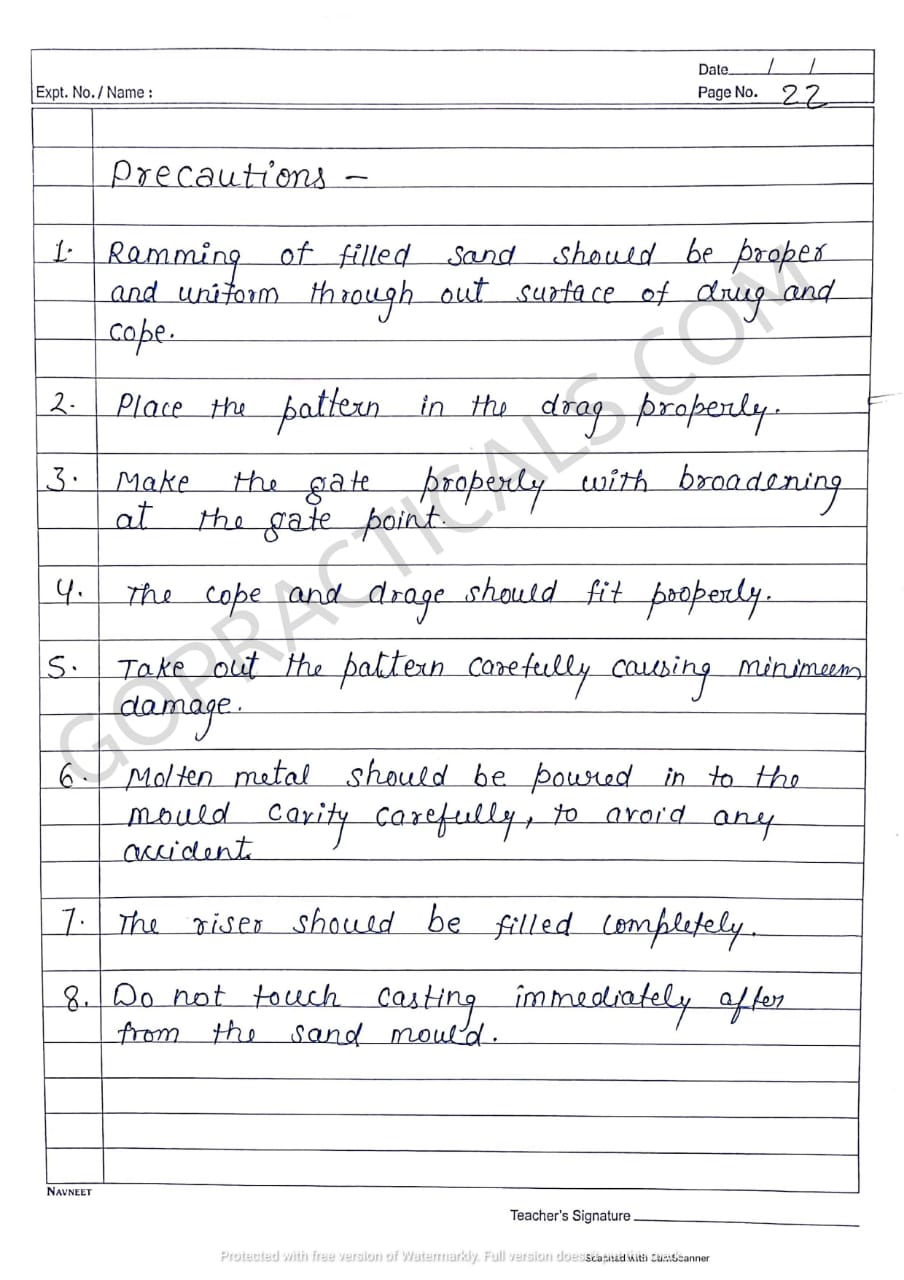 Date / /
Expt. No. / Name :
Page No. 22
Precautions -
1. Ramming of filled sand should be proper
and uniform through out surface of drug and
cope.
2. Place the pattern in the drag properly.
3. Make the gate properly with broadening
at the gate point.
4. The cope and drage should fit pooperly.
5. Take out the pattern carefully causing minimeem
damage.
6. Molten metal should be poured in to the
mould cavity carefully, to avoid any
accident.
7. The riser should be filled completely.
8. Do not touch casting immediately after
from the sand mould.
GOPRACTICALS.COM
NAVNEET
Teacher's Signature
Protected with free version of Watermarkly. Full version
Scanned with CamScanner